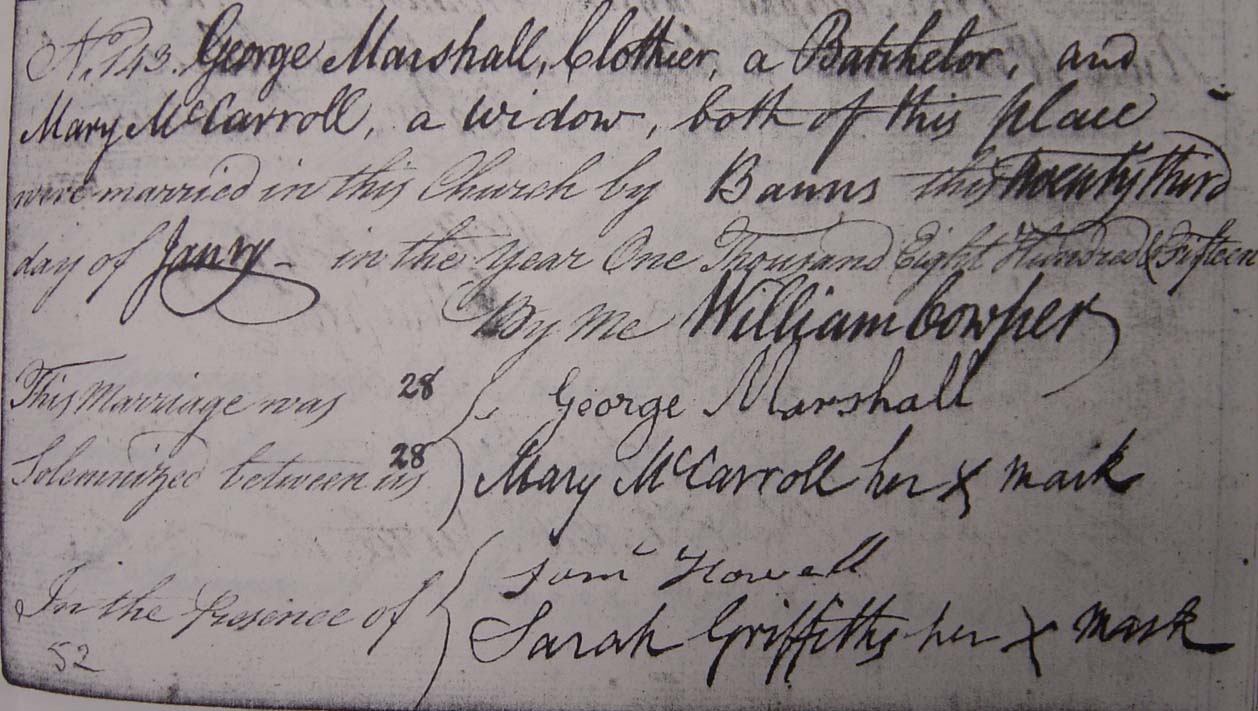 No. 143. George Marshall, Clothier, a Batchelor, and
Mary McCarroll, a widow, both of this place
were married in this Church by Banns this twenty third
day of Janry - in the Year One Thousand Eight Hundred & Fifteen
By me William Cowper
This Marriage was 28 George Marshall
Solemnized between us 28 Mary McCarroll her x mark
Saml Howell
In the Presence of
Sarah Griffiths her x mark
52